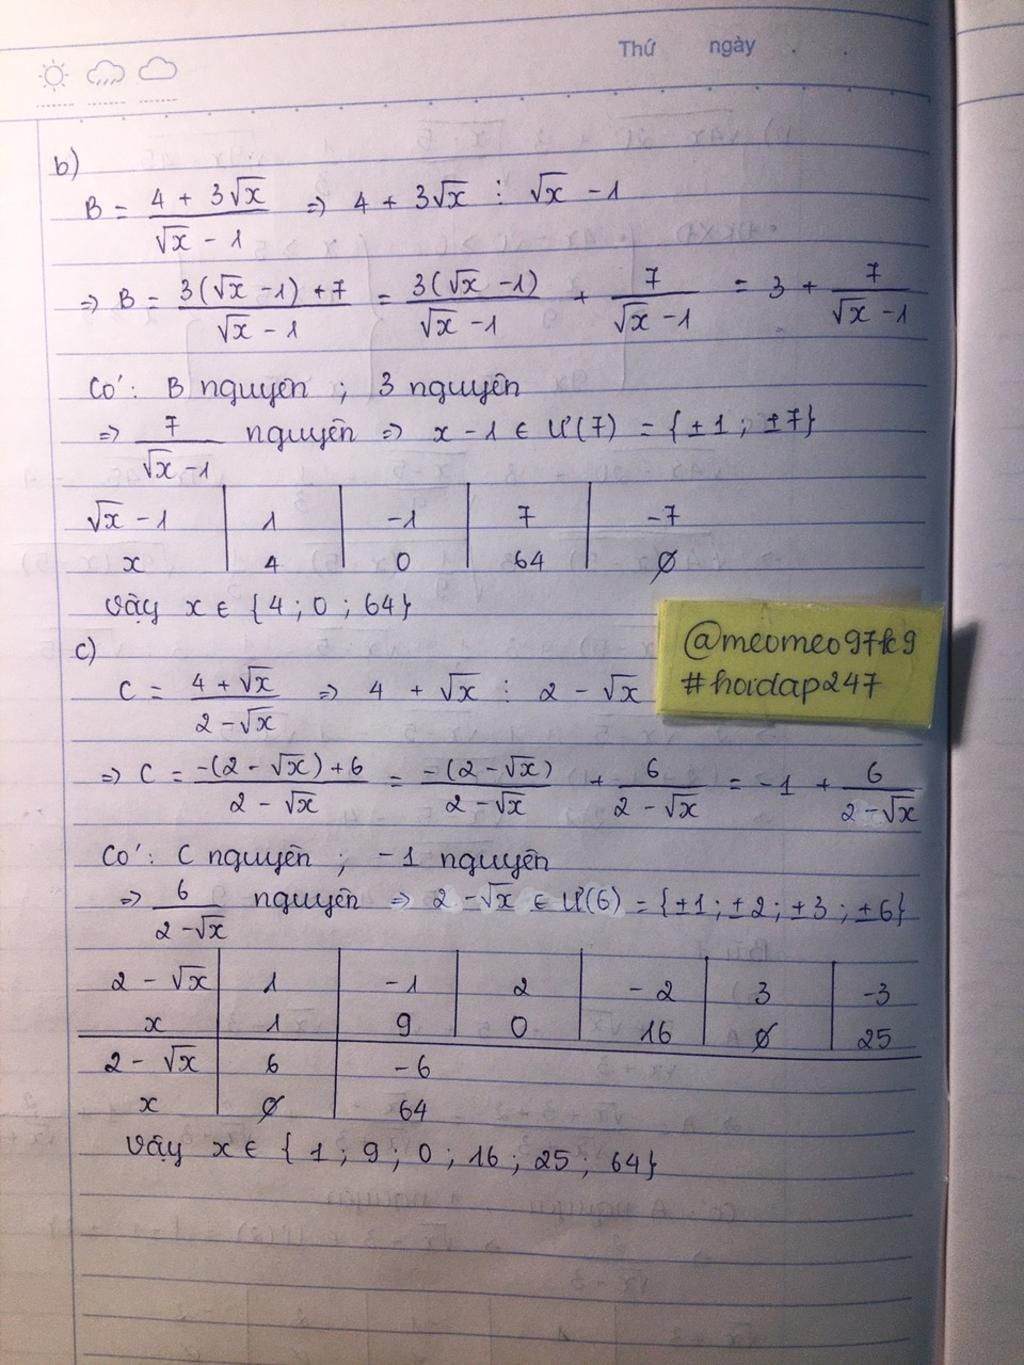 Thứ ngày
b)
B = (4 + 3√x)/(√x - 1) => 4 + 3√x ⋮ √x - 1
=> B = (3(√x - 1) + 7)/(√x - 1) = 3(√x - 1)/(√x - 1) + 7/(√x - 1) = 3 + 7/(√x - 1)
Có: B nguyên ; 3 nguyên
=> 7/(√x - 1) nguyên => x - 1 ∈ Ư(7) = {±1 ; ±7}
√x - 1 | 1 | -1 | 7 | -7
x | 4 | 0 | 64 | ∅
Vậy x ∈ {4 ; 0 ; 64}
@meomeo97k9
#hoidap247
c)
C = (4 + √x)/(2 - √x) => 4 + √x ⋮ 2 - √x
=> C = (-(2 - √x) + 6)/(2 - √x) = -(2 - √x)/(2 - √x) + 6/(2 - √x) = -1 + 6/(2 - √x)
Có: C nguyên ; -1 nguyên
=> 6/(2 - √x) nguyên => 2 - √x ∈ Ư(6) = {±1 ; ±2 ; ±3 ; ±6}
2 - √x | 1 | -1 | 2 | -2 | 3 | -3
x | 1 | 9 | 0 | 16 | ∅ | 25
2 - √x | 6 | -6
x | ∅ | 64
Vậy x ∈ { 1 ; 9 ; 0 ; 16 ; 25 ; 64}